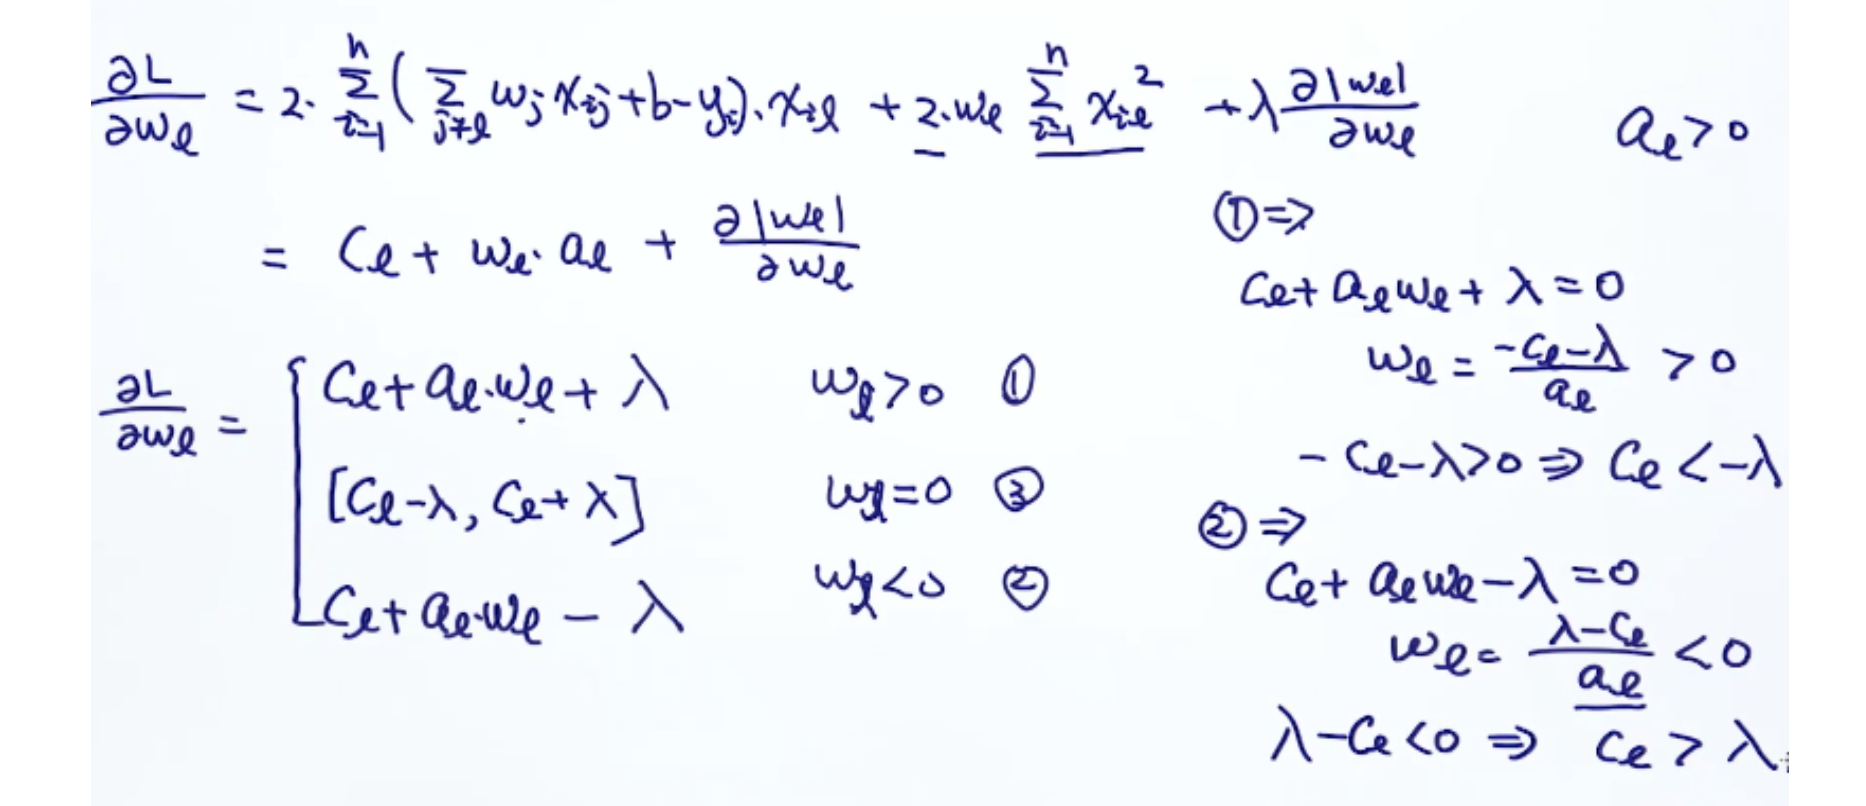 ∂L/∂wₗ = 2·∑ⁿᵢ₌₁(∑ⱼ≠ₗ wⱼxᵢⱼ+b-yᵢ)·xᵢₗ + 2·wₗ ∑ⁿᵢ₌₁ xᵢₗ² + λ ∂|wₗ|/∂wₗ
aₗ>0
= Cₗ + wₗ·aₗ + ∂|wₗ|/∂wₗ
∂L/∂wₗ = {
Cₗ+aₗ·wₗ+λ wₗ>0 ①
[Cₗ-λ, Cₗ+λ] wₗ=0 ③
Cₗ+aₗ·wₗ-λ wₗ<0 ②
①⇒
Cₗ+aₗwₗ+λ=0
wₗ = (-Cₗ-λ)/aₗ >0
-Cₗ-λ>0 ⇒ Cₗ<-λ
②⇒
Cₗ+aₗwₗ-λ=0
wₗ= (λ-Cₗ)/aₗ <0
λ-Cₗ<0 ⇒ Cₗ>λ